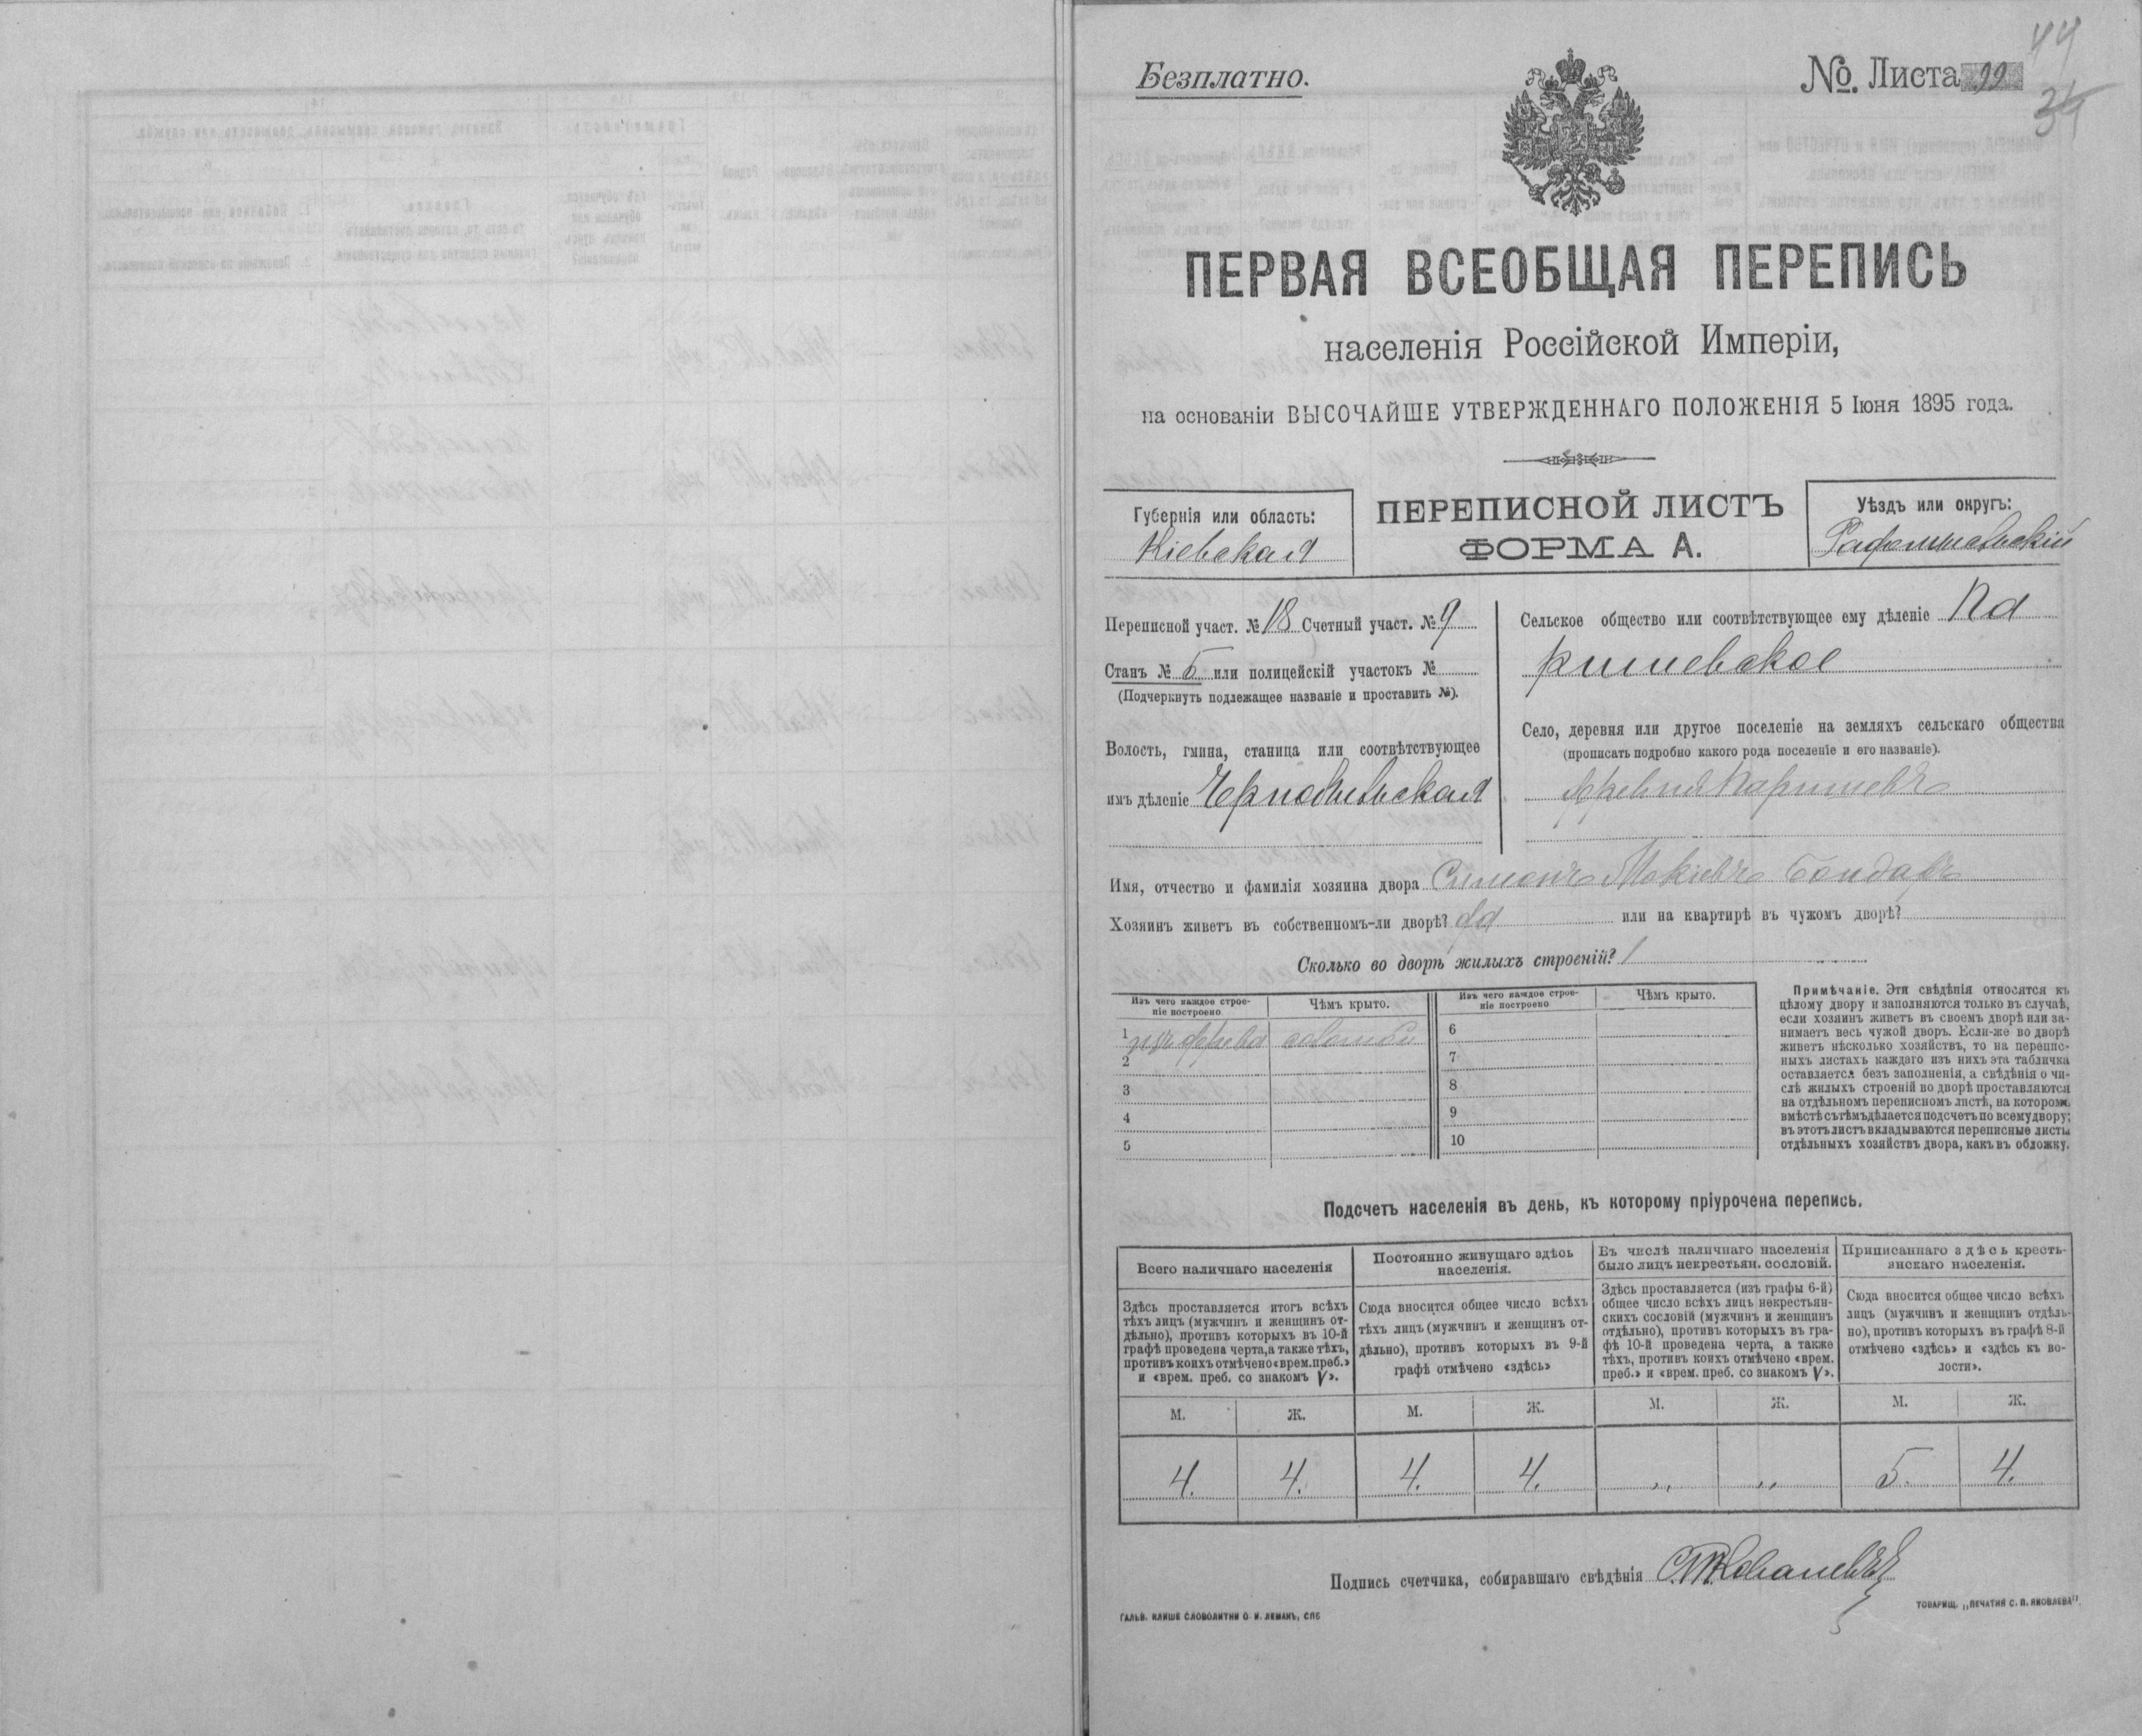 44
Безплатно.
№. Листа 22
34
ПЕРВАЯ ВСЕОБЩАЯ ПЕРЕПИСЬ
населенія Россійской Имперіи,
на основаніи ВЫСОЧАЙШЕ УТВЕРЖДЕННАГО ПОЛОЖЕНІЯ 5 Іюня 1895 года.
Губернія или область:
Кіевская
ПЕРЕПИСНОЙ ЛИСТЪ
ФОРМА А.
Уѣздъ или округъ:
Радомысльскій
Переписной участ. № 18 Счетный участ. № 9
Станъ № 5 или полицейскій участокъ №
(Подчеркнуть подлежащее названіе и проставить №).
Волость, гмина, станица или соотвѣтствующее
имъ дѣленіе Чернобыльская
Сельское общество или соотвѣтствующее ему дѣленіе Па
ришевское
Село, деревня или другое поселеніе на земляхъ сельскаго общества
(прописать подробно какого рода поселеніе и его названіе).
Деревня Паришевъ
Имя, отчество и фамилія хозяина двора Симонъ Бондарь
Хозяинъ живетъ въ собственномъ-ли дворѣ? да или на квартирѣ въ чужомъ дворѣ?
Сколько во дворѣ жилыхъ строеній? 1
Изъ чего каждое строе-
ніе построено
Чѣмъ крыто.
Изъ чего каждое строе-
ніе построено
Чѣмъ крыто.
1 изъ дерева соломой
2
3
4
5
6
7
8
9
10
Примѣчаніе. Эти свѣдѣнія относятся къ
цѣлому двору и заполняются только въ случаѣ,
если хозяинъ живетъ въ своемъ дворѣ или за-
нимаетъ весь чужой дворъ. Если-же во дворѣ
живетъ нѣсколько хозяйствъ, то на перепис-
ныхъ листахъ каждаго изъ нихъ эта табличка
оставляется безъ заполненія, а свѣдѣнія о чи-
слѣ жилыхъ строеній во дворѣ проставляются
на отдѣльномъ переписномъ листѣ, на которомъ
вмѣстѣ съ тѣмъ дѣлается подсчетъ по всему двору;
въ этотъ листъ вкладываются переписные листы
отдѣльныхъ хозяйствъ двора, какъ въ обложку.
Подсчетъ населенія въ день, къ которому пріурочена перепись.
Всего наличнаго населенія
Здѣсь проставляется итогъ всѣхъ
тѣхъ лицъ (мужчинъ и женщинъ от-
дѣльно), противъ которыхъ въ 10-й
графѣ проведена черта, а также тѣхъ,
противъ коихъ отмѣчено «врем. преб.»
и «врем. преб. со знакомъ V».
Постоянно живущаго здѣсь
населенія.
Сюда вносится общее число всѣхъ
тѣхъ лицъ (мужчинъ и женщинъ от-
дѣльно), противъ которыхъ въ 9-й
графѣ отмѣчено «здѣсь»
Въ числѣ наличнаго населенія
было лицъ некрестьян. сословій.
Здѣсь проставляется (изъ графы 6-й)
общее число всѣхъ лицъ некрестьян-
скихъ сословій (мужчинъ и женщинъ
отдѣльно), противъ которыхъ въ гра-
фѣ 10-й проведена черта, а также
тѣхъ, противъ коихъ отмѣчено «врем.
преб.» и «врем. преб. со знакомъ V».
Приписаннаго здѣсь кресть-
янскаго населенія.
Сюда вносится общее число всѣхъ
лицъ (мужчинъ и женщинъ отдѣль-
но), противъ которыхъ въ графѣ 8-й
отмѣчено «здѣсь» и «здѣсь къ во-
лости».
М. Ж. М. Ж. М. Ж. М. Ж.
4. 4. 4. 4. „ „ 5. 4.
Подпись счетчика, собиравшаго свѣдѣнія
ГАЛЬВ. КЛИШЕ СЛОВОЛИТНИ О. И. ЛЕМАНЪ, СПБ
ТОВАРИЩ. „ПЕЧАТНЯ С. П. ЯКОВЛЕВА".